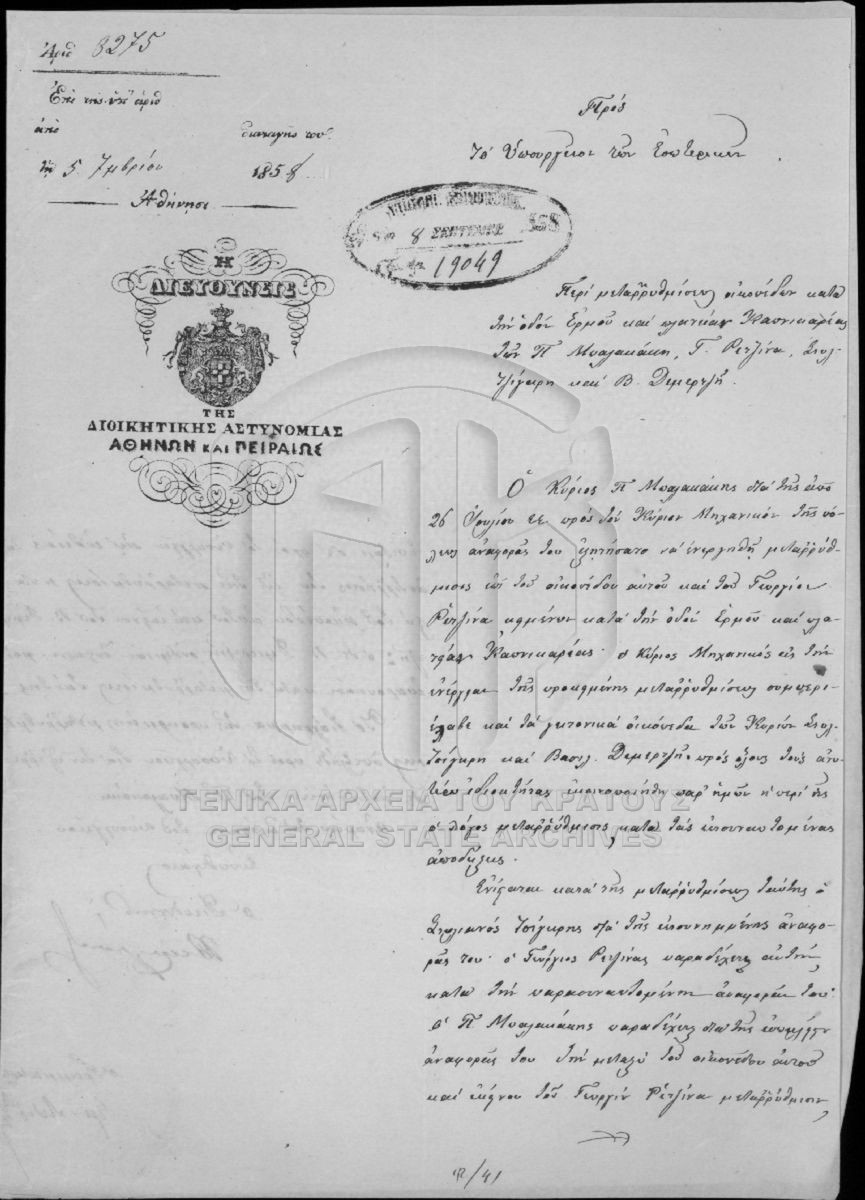 Ἀριθ 8275
Ἐπὶ τῆς ὑπ' ἀριθ
ἀπὸ διαταγῆς του
τῇ 5 7μβρίου 1858
Ἀθήνησι
Η
ΔΙΕΥΘΥΝΣΙΣ
ΤΗΣ
ΔΙΟΙΚΗΤΙΚΗΣ ΑΣΤΥΝΟΜΙΑΣ
ΑΘΗΝΩΝ ΚΑΙ ΠΕΙΡΑΙΩΣ
Πρὸς
τὸ Ὑπουργεῖον τῶν Ἐσωτερικῶν
8 ΣΕΠΤΕΜΒ 1858
19049
Περὶ μεταῤῥυθμίσεως οἰκοπέδων κατὰ
τὴν ὁδὸν Ἑρμοῦ καὶ πλατείαν Καπνικαρέας
τῶν Π Μπαλακάκη, Γ. Ρετζίνα, Στυλ
Τζίγαρη καὶ Β. Δεμερτζῆ.
Ὁ Κύριος Π Μπαλακάκης διὰ τῆς ἀπὸ
26 Ἰουλίου ἐ.ἔ. πρὸς τὸν Κύριον Μηχανικὸν τῆς πό-
λεως ἀναφορᾶς του ἐζητήσατο νὰ ἐνεργηθῇ μεταῤῥύθ-
μισις ἐπὶ τοῦ οἰκοπέδου αὐτοῦ καὶ τοῦ Γεωργίου
Ρετζίνα κειμένων κατὰ τὴν ὁδὸν Ἑρμοῦ καὶ πλα-
τείαν Καπνικαρέας. ὁ Κύριος Μηχανικὸς εἰς τὴν
ἐνέργειαν τῆς προκειμένης μεταῤῥυθμίσεως συμπερι-
έλαβε καὶ τὰ γειτονικὰ οἰκόπεδα τῶν Κυρίων Στυλ
Τσίγαρη καὶ Βασιλ. Δεμερτζῆ, πρὸς ὅλους τοὺς ἀνω-
τέρω ἰδιοκτήτας ἐκοινοποιήθη παρ' ἡμῶν ἡ περὶ ἧς
ὁ λόγος μεταῤῥύθμισις κατὰ τὰς ἐπισυναπτομένας
ἀποδείξεις.
Ἐνίσταται κατὰ τῆς μεταῤῥυθμίσεως ταύτης ὁ
Στυλιανὸς Τσίγαρης διὰ τῆς ἐπισυνημμένης ἀναφο-
ρᾶς του· ὁ Γεώργιος Ρετζίνας παραδέχεται αὐτὴν
κατὰ τὴν παρασυναπτομένην ἀναφοράν του·
ὁ Π. Μπαλακάκης παραδέχεται διὰ τῆς
ἀναφορᾶς του τὴν μεταξὺ τοῦ οἰκοπέδου αὐτοῦ
καὶ ἐκείνου τοῦ Γεωργίου Ρετζίνα μεταῤῥύθμισιν,
/41
ΓΕΝΙΚΑ ΑΡΧΕΙΑ ΤΟΥ ΚΡΑΤΟΥΣ
GENERAL STATE ARCHIVES